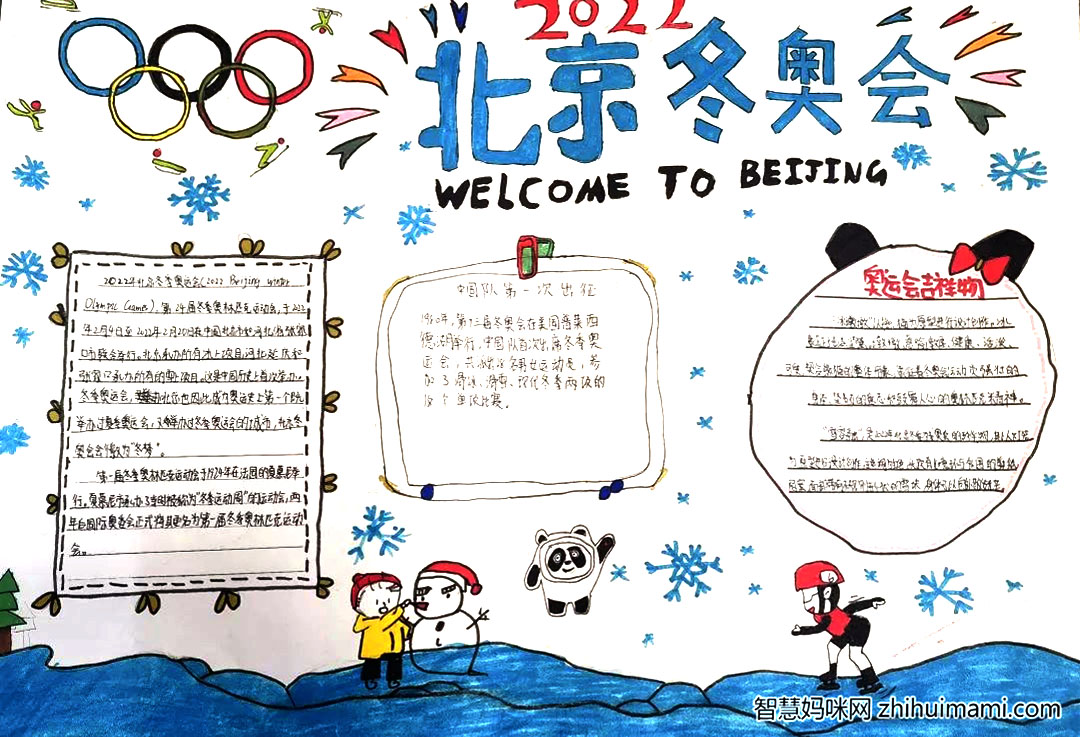 2022
北京冬奥会
WELCOME TO BEIJING
2022年北京冬季奥运会(2022 Beijing winter
Olympic Games),第24届冬季奥林匹克运动会,于2022
年2月4日至2022年2月20日在中国北京市和河北省张家
口市联合举行。北京承办所有冰上项目
张家口承办所有的雪上项目。这是中国历史上首次举办
冬季奥运会,北京也因此成为奥运史上第一个既
举办过夏季奥运会,又举办过冬季奥运会的城市,
奥会会徽为"冬梦"。
第一届冬季奥林匹克运动会于1924年在法国的夏慕尼举
行。夏慕尼市承办了当时被称为"冬季运动周"的运动会,两
年后国际奥委会正式将其更名为第一届冬季奥林匹克运动
会。
中国队第一次出征
1980年,第十三届冬奥会在美国普莱西
德湖举行,中国队首次出席冬季奥
运会,共派出28名男女运动员,参
加了滑冰、滑雪、现代冬季两项的
18个单项比赛。
奥运会吉祥物
"冰墩墩"以熊猫为原型进行设计创作。冰
象征纯洁、坚强,敦厚,健康、活泼、
可爱,契合熊猫的整体形象,象征着冬奥会运动员强壮的
身体、坚韧的意志和鼓舞人心的奥林匹克精神。
"雪容融"
为原型进行设计创作
智慧妈咪网 zhihuimami.com